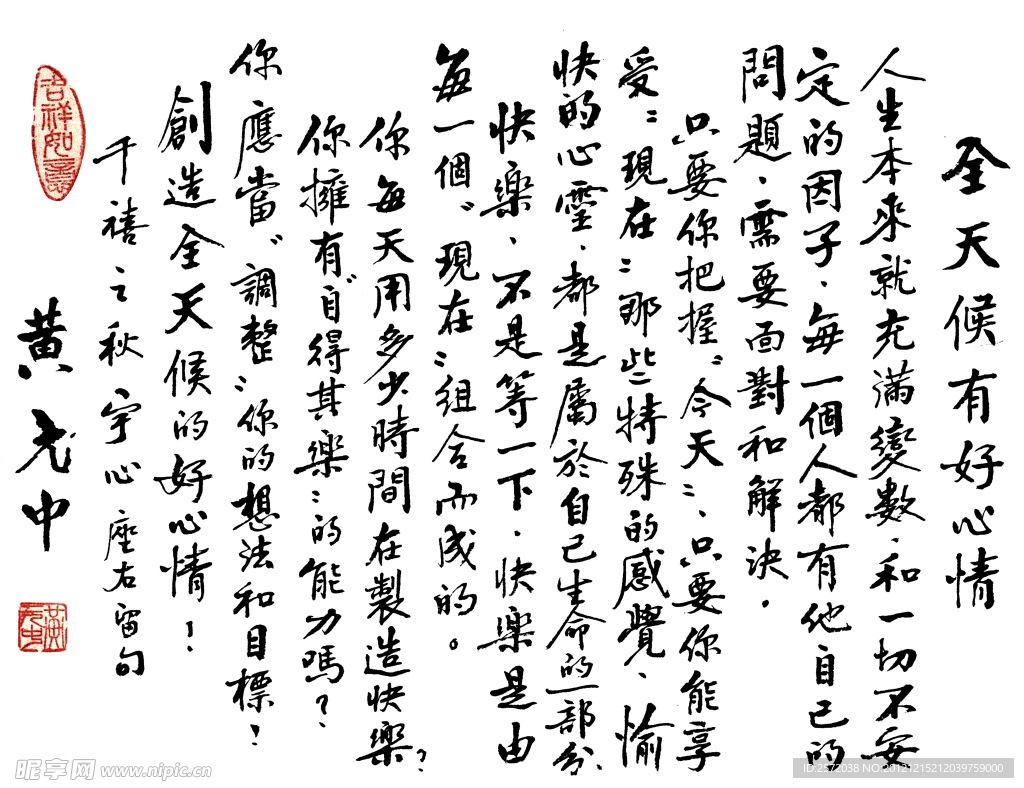 全天候有好心情
人生本來就充滿變數、和一切不安
定的因子、每一個人都有他自己的
問題、需要面對和解決.
只要你把握"今天"、只要你能享
受"現在"那些特殊的感覺、愉
快的心靈、都是屬於自己生命的一部份
快樂、不是等一下.快樂是由
每一個"現在"組合而成的。
你每天用多少時間在製造快樂?
你擁有"自得其樂"的能力嗎?
你應當"調整"你的想法和目標!
創造全天候的好心情!
千禧之秋宇心座右留句
黃中
吉祥如意
昵享网 www.nipic.cn
ID:2572038 NO:20121215212039759000